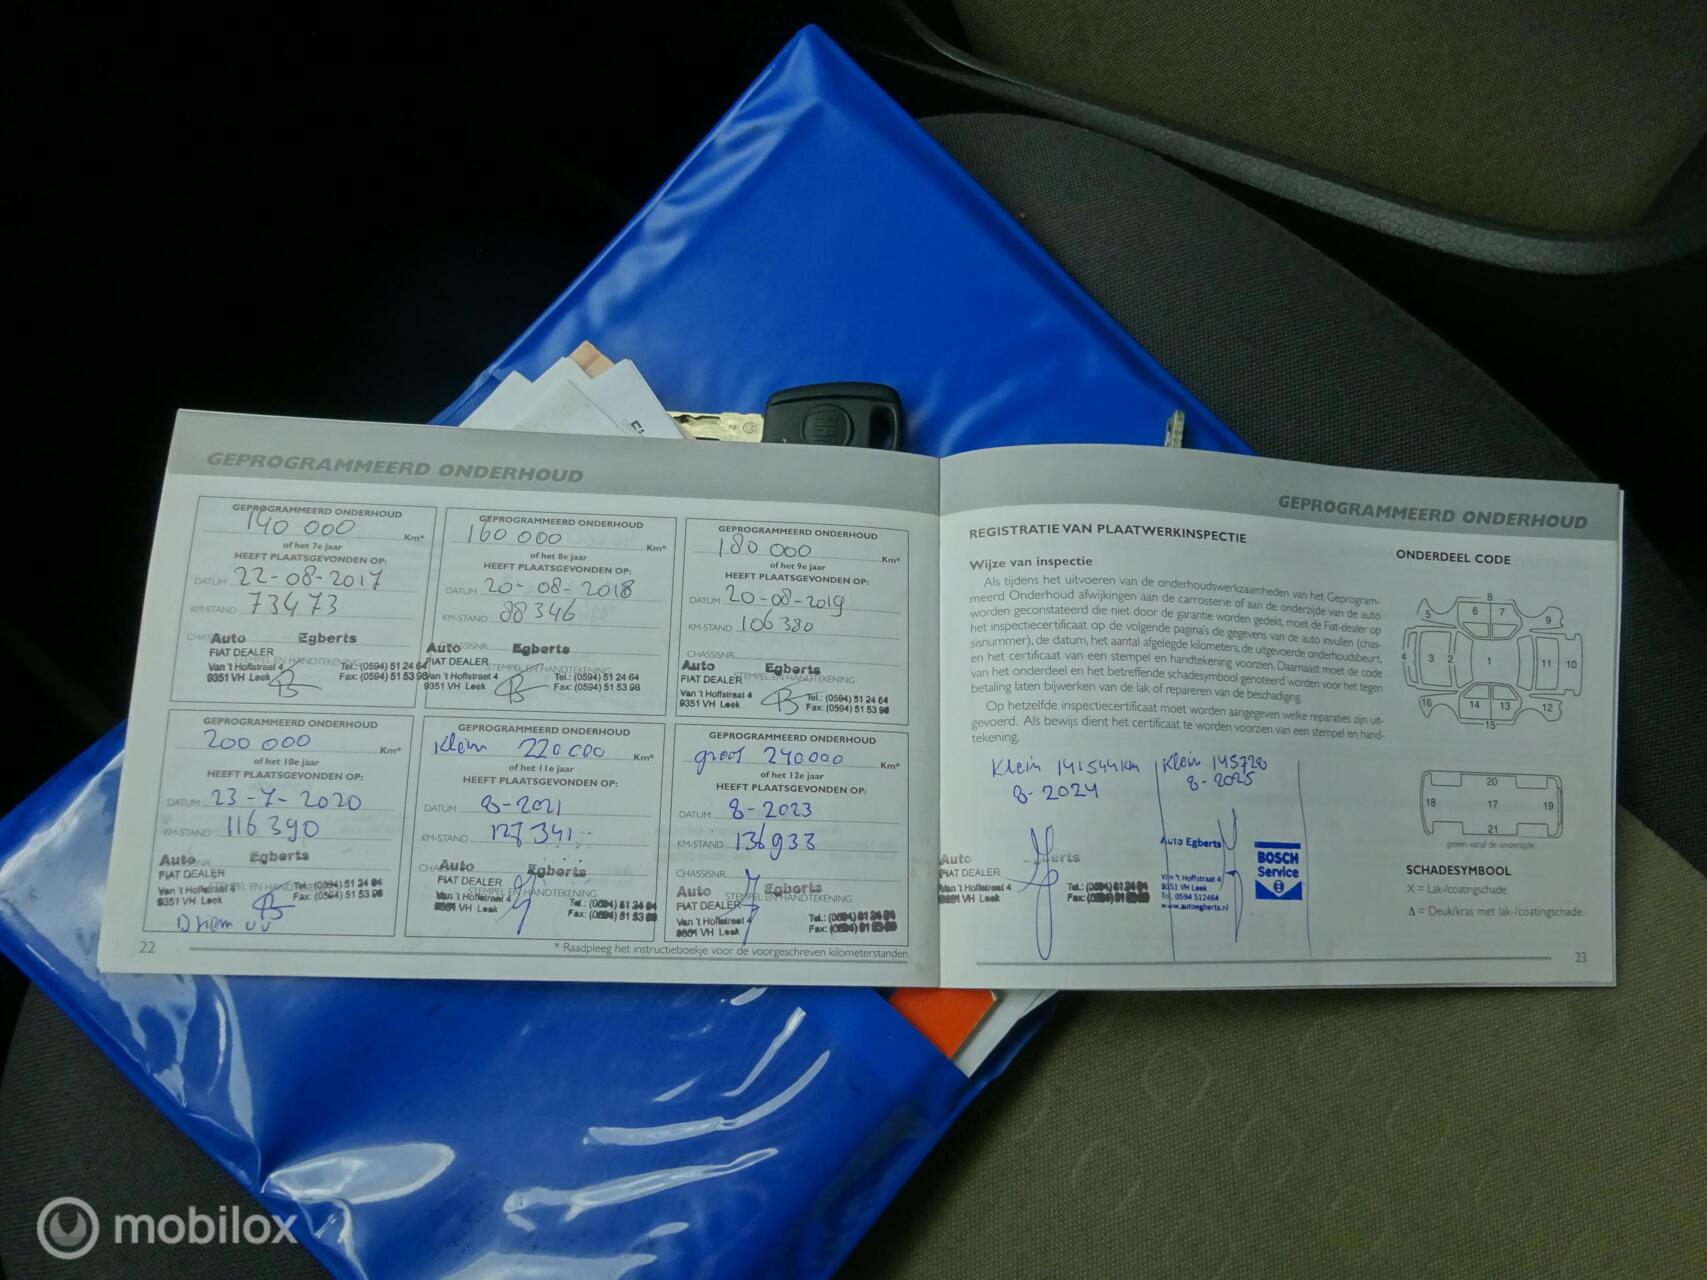 GEPROGRAMMEERD ONDERHOUD
GEPROGRAMMEERD ONDERHOUD
140 000 Km*
of het 7e jaar
HEEFT PLAATSGEVONDEN OP:
DATUM 22-08-2017
KM-STAND 73473
Auto Egberts
FIAT DEALER
STEMPEL EN HANDTEKENING
Van 't Hoffstraat 4 Tel.: (0594) 51 24 64
9351 VH Leek Fax: (0594) 51 53 98
GEPROGRAMMEERD ONDERHOUD
160 000 Km*
of het 8e jaar
HEEFT PLAATSGEVONDEN OP:
DATUM 20-08-2018
KM-STAND 88346
CHASSISNR.
Auto Egberts
FIAT DEALER
STEMPEL EN HANDTEKENING
Van 't Hoffstraat 4 Tel.: (0594) 51 24 64
9351 VH Leek Fax: (0594) 51 53 98
GEPROGRAMMEERD ONDERHOUD
180 000 Km*
of het 9e jaar
HEEFT PLAATSGEVONDEN OP:
DATUM 20-08-2019
KM-STAND 106380
CHASSISNR.
Auto Egberts
FIAT DEALER
STEMPEL EN HANDTEKENING
Van 't Hoffstraat 4 Tel.: (0594) 51 24 64
9351 VH Leek Fax: (0594) 51 53 98
GEPROGRAMMEERD ONDERHOUD
200 000 Km*
of het 10e jaar
HEEFT PLAATSGEVONDEN OP:
DATUM 23-7-2020
KM-STAND 116390
Auto Egberts
FIAT DEALER
STEMPEL EN HANDTEKENING
Van 't Hoffstraat 4 Tel.: (0594) 51 24 64
9351 VH Leek Fax: (0594) 51 53 98
GEPROGRAMMEERD ONDERHOUD
Klein 220 000 Km*
of het 11e jaar
HEEFT PLAATSGEVONDEN OP:
DATUM 8-2021
KM-STAND 127341
Auto Egberts
FIAT DEALER
STEMPEL EN HANDTEKENING
Van 't Hoffstraat 4 Tel.: (0594) 51 24 64
9351 VH Leek Fax: (0594) 51 53
GEPROGRAMMEERD ONDERHOUD
groot 240000 Km*
of het 12e jaar
HEEFT PLAATSGEVONDEN OP:
DATUM 8-2023
KM-STAND 136933
CHASSISNR.
Auto Egberts
STEMPEL EN HANDTEKENING
FIAT DEALER
Van 't Hoffstraat 4 Tel.:
9351 VH Leek Fax:
22
* Raadpleeg het instructieboekje voor de voorgeschreven kilometerstanden
GEPROGRAMMEERD ONDERHOUD
REGISTRATIE VAN PLAATWERKINSPECTIE
Wijze van inspectie
Als tijdens het uitvoeren van de onderhoudswerkzaamheden van het Geprogram-
meerd Onderhoud afwijkingen aan de carrosserie of aan de onderzijde van de auto
worden geconstateerd die niet door de garantie worden gedekt, moet de Fiat-dealer op
het inspectiecertificaat op de volgende pagina's de gegevens van de auto invullen (chas-
sisnummer), de datum, het aantal afgelegde kilometers, de uitgevoerde onderhoudsbeurt,
en het certificaat van een stempel en handtekening voorzien. Daarnaast moet de code
van het onderdeel en het betreffende schadesymbool genoteerd worden voor het tegen
betaling laten bijwerken van de lak of repareren van de beschadiging.
Op hetzelfde inspectiecertificaat moet worden aangegeven welke reparaties zijn uit-
gevoerd. Als bewijs dient het certificaat te worden voorzien van een stempel en hand-
tekening.
Klein 141544km
8-2024
Auto Egberts
FIAT DEALER
Van 't Hoffstraat 4 Tel.:
9351 VH Leek Fax:
Klein 145720
8-2025
Auto Egberts
Van 't Hoffstraat 4
9351 VH Leek
Tel. 0594 512464
www.autoegberts.nl
BOSCH
Service
ONDERDEEL CODE
8
5 6 7 9
4 3 2 1 11 10
16 14 13 12
15
20
18 17 19
21
gezien vanaf de onderzijde
SCHADESYMBOOL
X = Lak-/coatingschade.
Δ = Deuk/kras met lak-/coatingschade.
23
mobilox